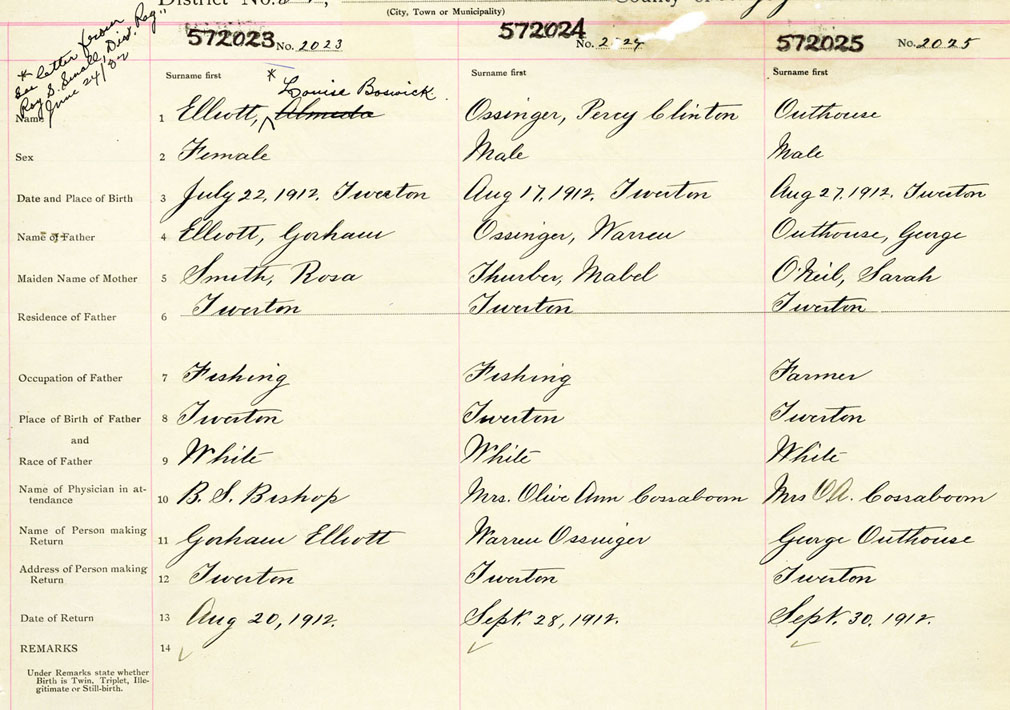 District No.
(City, Town or Municipality)
County of
* See letter from
Roy S. Small, Div. Reg.
June 24/82
572023 No. 2023
572024 No. 2024
572025 No. 2025
Surname first * Surname first Surname first
Louise Boswick
Name 1 Elliott, Almeda Ossinger, Percy Clinton Outhouse
Sex 2 Female Male Male
Date and Place of Birth 3 July 22, 1912. Tiverton Aug 17, 1912. Tiverton Aug 27, 1912. Tiverton
Name of Father 4 Elliott, Gorham Ossinger, Warren Outhouse, George
Maiden Name of Mother 5 Smith, Rosa Thurber, Mabel O'Neil, Sarah
Residence of Father 6 Tiverton Tiverton Tiverton
Occupation of Father 7 Fishing Fishing Farmer
Place of Birth of Father 8 Tiverton Tiverton Tiverton
and
Race of Father 9 White White White
Name of Physician in at-
tendance 10 B. S. Bishop Mrs. Olive Ann Cossaboom Mrs O.A. Cossaboom
Name of Person making
Return 11 Gorham Elliott Warren Ossinger George Outhouse
Address of Person making
Return 12 Tiverton Tiverton Tiverton
Date of Return 13 Aug 20, 1912. Sept. 28, 1912. Sept. 30, 1912.
REMARKS 14
Under Remarks state whether
Birth is Twin, Triplet, Ille-
gitimate or Still-birth.